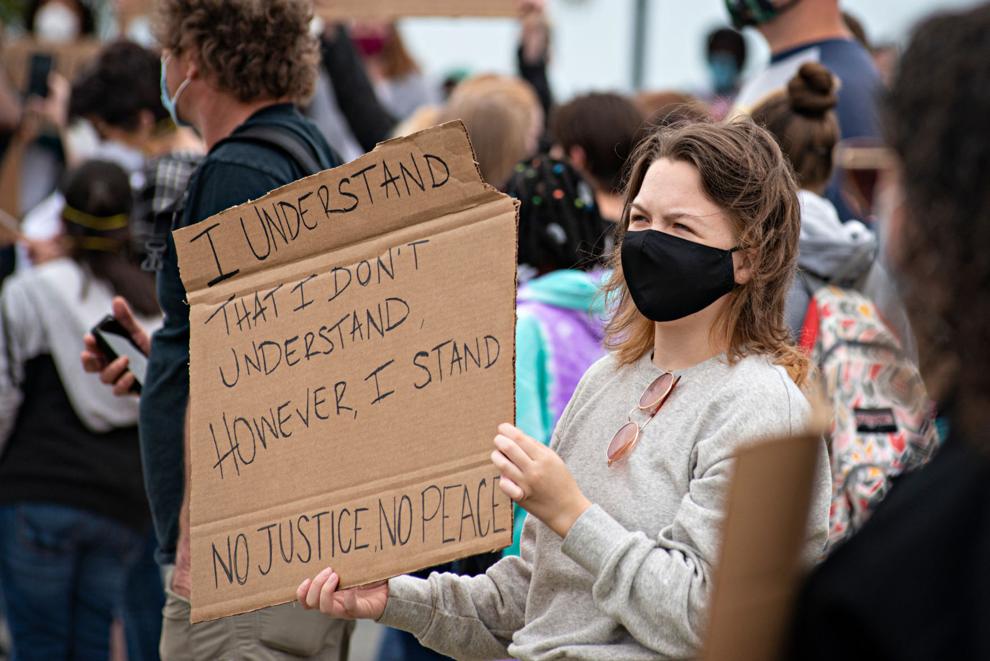 I UNDERSTAND
THAT I DON'T
UNDERSTAND,
HOWEVER, I STAND
NO JUSTICE, NO PEACE